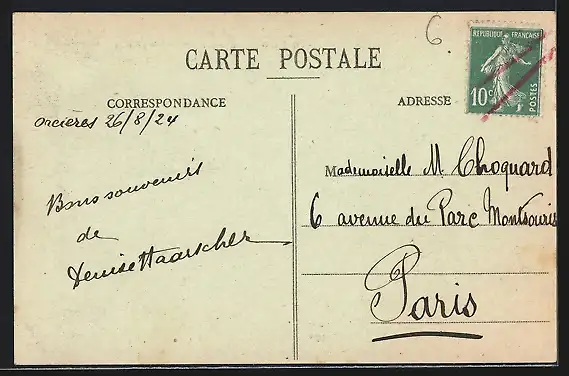 6.
REPUBLIQUE FRANCAISE
10c
POSTES
CARTE POSTALE
CORRESPONDANCE
ADRESSE
Orcières 26/8/24
Bons souvenirs
de
Denise Haarscher
Mademoiselle M Choquard
6 avenue du Parc Montsouris
Paris